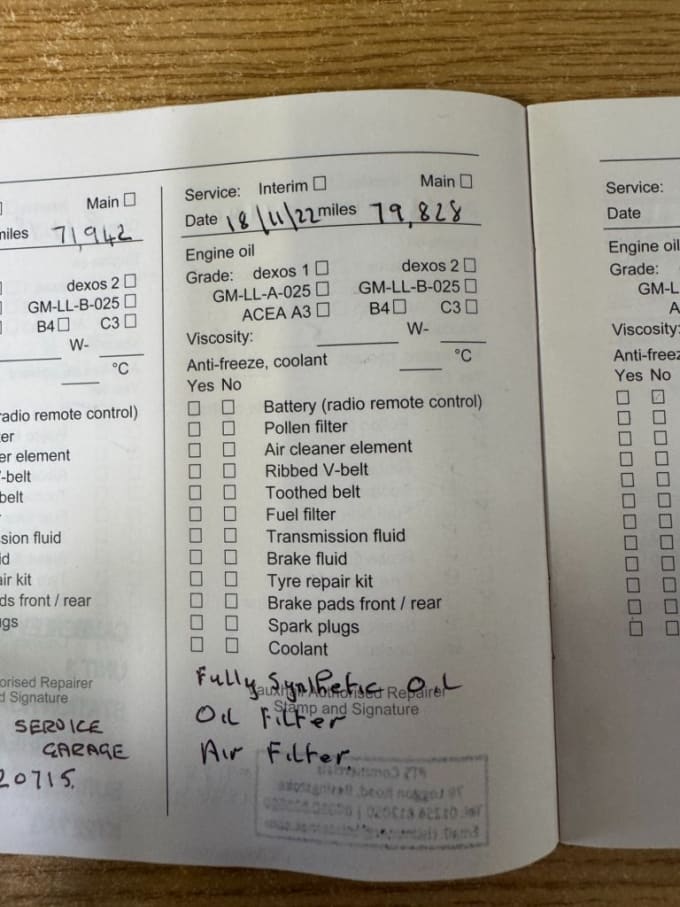 Main
miles 71,942
dexos 2
GM-LL-B-025
B4 C3
W-
°C
radio remote control)
er
er element
-belt
belt
sion fluid
id
air kit
ds front / rear
ugs
orised Repairer
d Signature
SERVICE
GARAGE
20715.
Service: Interim Main
Date 18/11/22 miles 79,828
Engine oil
Grade: dexos 1 dexos 2
GM-LL-A-025 GM-LL-B-025
ACEA A3 B4 C3
Viscosity: W-
Anti-freeze, coolant °C
Yes No
Battery (radio remote control)
Pollen filter
Air cleaner element
Ribbed V-belt
Toothed belt
Fuel filter
Transmission fluid
Brake fluid
Tyre repair kit
Brake pads front / rear
Spark plugs
Coolant
Fully Synthetic Oil
Vauxhall Authorised Repairer
Stamp and Signature
Oil Filter
Air Filter.
Service:
Date
Engine oil
Grade:
GM-L
A
Viscosity:
Anti-freez
Yes No